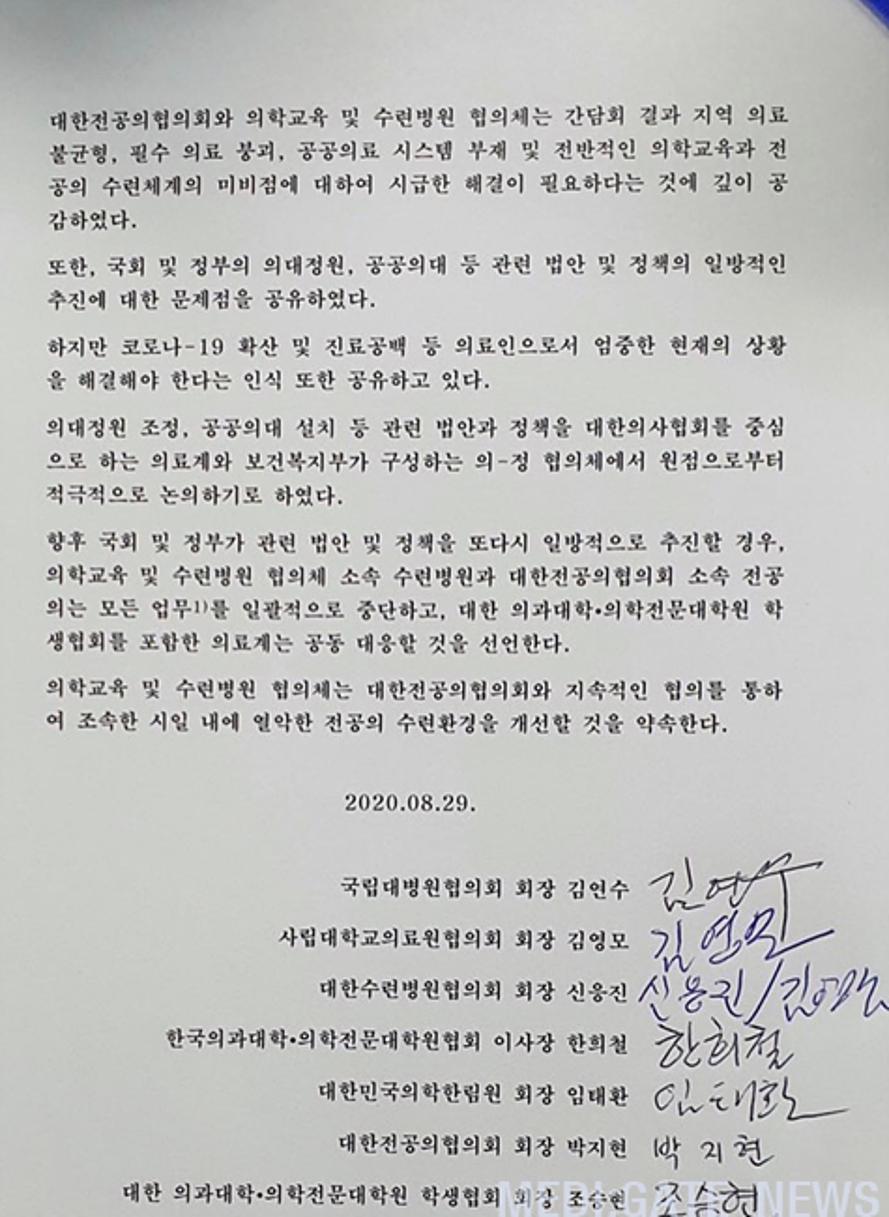 대한전공의협의회와 의학교육 및 수련병원 협의체는 간담회 결과 지역 의료
불균형, 필수 의료 붕괴, 공공의료 시스템 부재 및 전반적인 의학교육과 전
공의 수련체계의 미비점에 대하여 시급한 해결이 필요하다는 것에 깊이 공
감하였다.
또한, 국회 및 정부의 의대정원, 공공의대 등 관련 법안 및 정책의 일방적인
추진에 대한 문제점을 공유하였다.
하지만 코로나-19 확산 및 진료공백 등 의료인으로서 엄중한 현재의 상황
을 해결해야 한다는 인식 또한 공유하고 있다.
의대정원 조정, 공공의대 설치 등 관련 법안과 정책을 대한의사협회를 중심
으로 하는 의료계와 보건복지부가 구성하는 의-정 협의체에서 원점으로부터
적극적으로 논의하기로 하였다.
향후 국회 및 정부가 관련 법안 및 정책을 또다시 일방적으로 추진할 경우,
의학교육 및 수련병원 협의체 소속 수련병원과 대한전공의협의회 소속 전공
의는 모든 업무1)를 일괄적으로 중단하고, 대한 의과대학•의학전문대학원 학
생협회를 포함한 의료계는 공동 대응할 것을 선언한다.
의학교육 및 수련병원 협의체는 대한전공의협의회와 지속적인 협의를 통하
여 조속한 시일 내에 열악한 전공의 수련환경을 개선할 것을 약속한다.
2020.08.29.
국립대병원협의회 회장 김연수 김연수
사립대학교의료원협의회 회장 김영모 김영모
대한수련병원협의회 회장 신응진 신응진/
한국의과대학•의학전문대학원협회 이사장 한희철 한희철
대한민국의학한림원 회장 임태환 임태환
대한전공의협의회 회장 박지현 박지현
대한 의과대학•의학전문대학원 학생협회 회장 조승현 조승현
MEDI:GATE NEWS